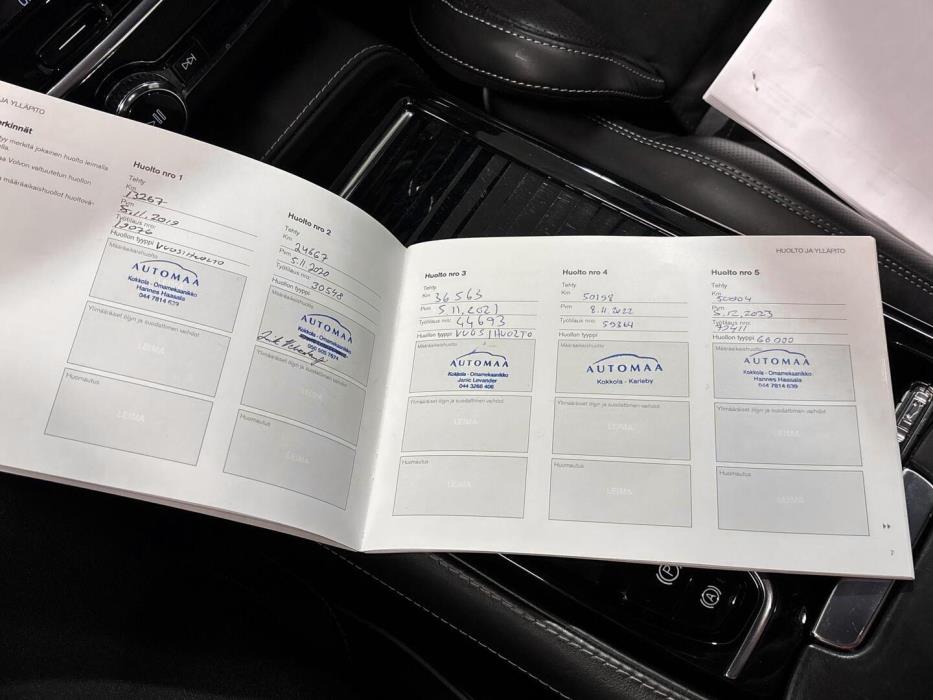 JA YLLÄPITO
rkinnät
yy merkitä jokainen huolto leimalla
la.
aa Volvon valtuutetun huollon
a määräaikaishuollot huoltovä-
Huolto nro 1
Tehty
Km
13267
Pvm
5.11.2019
Työtilaus nro:
Huollon tyyppi VUOSIHUOLTO
Määräaikaishuolto
AUTOMAA
Kokkola - Omamekaanikko
Hannes Haasala
044 7814 639
Ylimääräiset öljyn ja suodattimen vaihdot
LEIMA
Huomautus
LEIMA
Huolto nro 2
Tehty
Km
24667
Pvm
5.11.2020
Työtilaus nro:
30548
Huollon tyyppi
Määräaikaishuolto
AUTOMAA
Kokkola - Omamekaanikko
Ylimääräiset öljyn ja suodattimen vaihdot
LEIMA
Huomautus
LEIMA
HUOLTO JA YLLÄPITO
Huolto nro 3
Tehty
Km 36563
Pvm 5.11.2021
Työtilaus nro: 44693
Huollon tyyppi VUOSIHUOLTO
Määräaikaishuolto
AUTOMAA
Kokkola - Omamekaanikko
Janic Levander
044 3266 406
Ylimääräiset öljyn ja suodattimen vaihdot
LEIMA
Huomautus
LEIMA
Huolto nro 4
Tehty
Km
50198
Pvm
8.11.2022
Työtilaus nro:
59364
Huollon tyyppi
Määräaikaishuolto
AUTOMAA
Kokkola - Karleby
Ylimääräiset öljyn ja suodattimen vaihdot
LEIMA
Huomautus
LEIMA
Huolto nro 5
Tehty
Km
Pvm
5.12.2023
Työtilaus nro:
Huollon tyyppi 60 000
Määräaikaishuolto
AUTOMAA
Kokkola - Omamekaanikko
Hannes Haasala
044 7814 639
Ylimääräiset öljyn ja suodattimen vaihdot
LEIMA
Huomautus
LEIMA
7
P
A